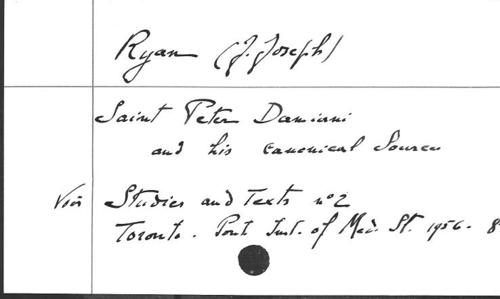 Ryan (J. Joseph)
Saint Peter Damiani
and his canonical Sources
Voir Studies and Texts n°2
Toronto. Pont Inst. of Med. St. 1956. 8